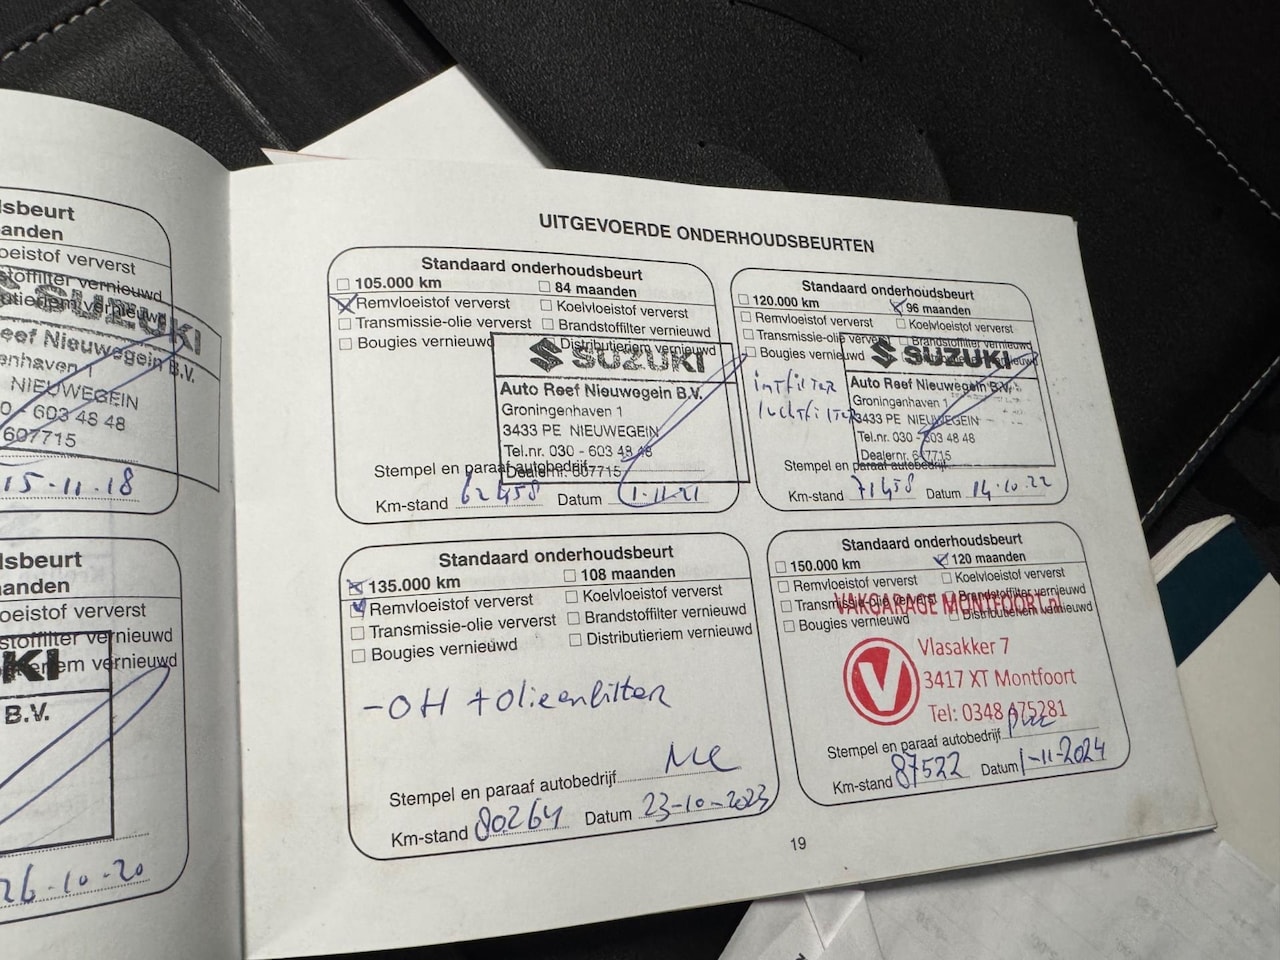 lsbeurt
anden
oeistof ververst
stoffilter vernieuwd
utieriem vernieuwd
SUZUKI
Reef Nieuwegein B.V.
enhaven 1
NIEUWEGEIN
0 - 603 48 48
607715
15-11-18
lsbeurt
aanden
oeistof ververst
stoffilter vernieuwd
eriem vernieuwd
KI
B.V.
26-10-20
UITGEVOERDE ONDERHOUDSBEURTEN
Standaard onderhoudsbeurt
105.000 km
84 maanden
Remvloeistof ververst
Koelvloeistof ververst
Transmissie-olie ververst
Brandstoffilter vernieuwd
Bougies vernieuwd
Distributieriem vernieuwd
SUZUKI
Auto Reef Nieuwegein B.V.
Groningenhaven 1
3433 PE NIEUWEGEIN
Tel.nr. 030 - 603 48 48
Dealernr. 607715
Stempel en paraaf autobedrijf
Km-stand 62458 Datum 1-11-21
Standaard onderhoudsbeurt
120.000 km
96 maanden
Remvloeistof ververst
Koelvloeistof ververst
Transmissie-olie ververst
Brandstoffilter vernieuwd
Bougies vernieuwd
SUZUKI
intfilter
luchtfilter
Auto Reef Nieuwegein B.V.
Groningenhaven 1
3433 PE NIEUWEGEIN
Tel.nr. 030 - 603 48 48
Dealernr. 607715
Stempel en paraaf autobedrijf
Km-stand 71458 Datum 14-10-22
Standaard onderhoudsbeurt
135.000 km
108 maanden
Remvloeistof ververst
Koelvloeistof ververst
Transmissie-olie ververst
Brandstoffilter vernieuwd
Bougies vernieuwd
Distributieriem vernieuwd
-OH + olie en filter
Stempel en paraaf autobedrijf
Km-stand 80264 Datum 23-10-2023
Standaard onderhoudsbeurt
150.000 km
120 maanden
Remvloeistof ververst
Koelvloeistof ververst
Transmissie-olie ververst
Brandstoffilter vernieuwd
Bougies vernieuwd
Distributieriem vernieuwd
VAKGARAGE MONTFOORT.nl
Vlasakker 7
3417 XT Montfoort
Tel: 0348 475281
Stempel en paraaf autobedrijf
Km-stand 87522 Datum 1-11-2024
19